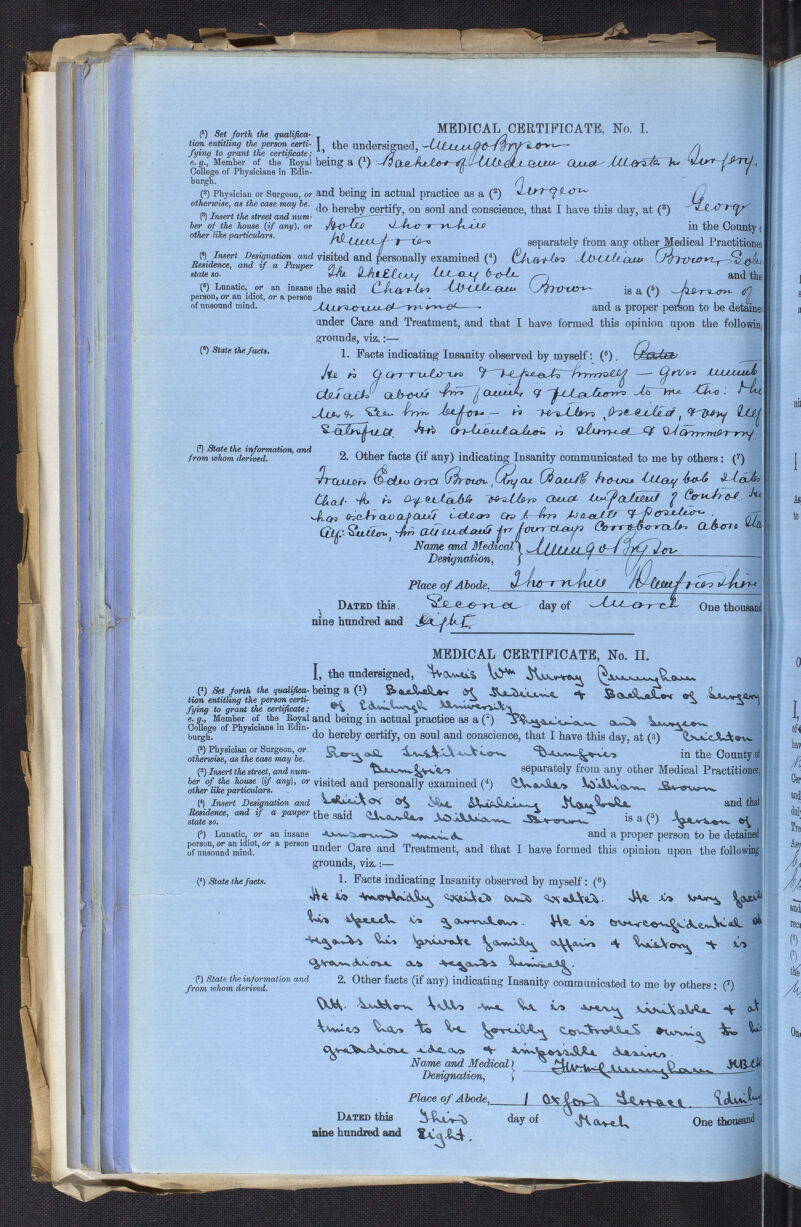 MEDICAL CERTIFICATE, No. I.
(1) Set forth the qualifica-
tion entitling the person certi-
fying to grant the certificate;
e. g., Member of the Royal
College of Physicians in Edin-
burgh.
I, the undersigned, Mungo Bryson
being a (1) Bachelor of Medicine and Master in Surgery,
(2) Physician or Surgeon, or
otherwise, as the case may be.
and being in actual practice as a (2) Surgeon
(3) Insert the street and num-
ber of the house (if any), or
other like particulars.
do hereby certify, on soul and conscience, that I have this day, at (3) George
Hotel Thornhill in the County
Dumfries separately from any other Medical Practitioner
(4) Insert Designation and
Residence, and if a Pauper
state so.
visited and personally examined (4) Charles William Brown,
The Maybole and tha
(5) Lunatic, or an insane
person, or an idiot, or a person
of unsound mind.
the said Charles William Brown is a (5) person of
unsound mind and a proper person to be detaine
under Care and Treatment, and that I have formed this opinion upon the followin
grounds, viz.:—
(6) State the facts.
1. Facts indicating Insanity observed by myself: (6).
He is garrulous & repeats himself — gives minute
details about his family & relations to me tho: I
never seen him before — is restless, excited, & very self
satisfied. His articulation is slurred & stammering.
(7) State the information, and
from whom derived.
2. Other facts (if any) indicating Insanity communicated to me by others: (7)
Francis Edward Brown, Royal Bank House Maybole states
that he is excitable restless and impatient of control. He
has extravagant ideas as to his wealth & position.
Alf: Sutton, his attendant for four days corroborates above
Name and Medical
Designation, Mungo Bryson
Place of Abode, Thornhill Dumfriesshire
DATED this Second day of March One thousand
nine hundred and Eight.
MEDICAL CERTIFICATE, No. II.
I, the undersigned, Francis Wm Murray Cunningham
(1) Set forth the qualifica-
tion entitling the person certi-
fying to grant the certificate;
e. g., Member of the Royal
College of Physicians in Edin-
burgh.
being a (1) Bachelor of Medicine & Bachelor of Surgery
of Edinburgh University
and being in actual practice as a (2) Physician and Surgeon
do hereby certify, on soul and conscience, that I have this day, at (3) Crichton
(2) Physician or Surgeon, or
otherwise, as the case may be.
Royal Institution Dumfries in the County of
(3) Insert the street, and num-
ber of the house (if any), or
other like particulars.
Dumfries separately from any other Medical Practitioner,
visited and personally examined (4) Charles William Brown
(4) Insert Designation and
Residence, and if a pauper
state so.
Solicitor of The Maybole and that
the said Charles William Brown is a (5) person of
(5) Lunatic, or an insane
person, or an idiot, or a person
of unsound mind.
unsound mind and a proper person to be detained
under Care and Treatment, and that I have formed this opinion upon the following
grounds, viz.:—
(6) State the facts.
1. Facts indicating Insanity observed by myself: (6)
He is morbidly excited and exalted. He is very
his speech is garrulous. He is overconfidential
regards his private family affairs & history & is
grandiose as regards himself.
(7) State the information and
from whom derived.
2. Other facts (if any) indicating Insanity communicated to me by others: (7)
Att. Sutton tells me he is very irritable & at
times has to be forcibly controlled owing to his
grandiose ideas & impossible desires.
Name and Medical
Designation, FWM Cunningham
Place of Abode, 1 Oxford Terrace
DATED this Third day of March One thousand
nine hundred and Eight.